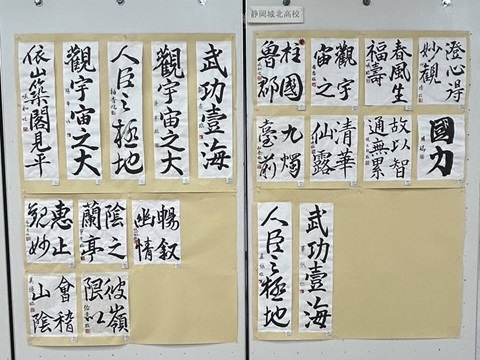 静岡城北高校
澄心得
妙觀
春風生
福壽
觀宇
宙之
柱國
魯郡
國力
故以智
通無累
清華
仙露
九燭
武功壹海
人臣之極地
武功壹海
觀宇宙之大
人臣之極地
觀宇宙之大
依山築閣見平
暢叙
幽情
陰之
蘭亭
惠止
觀妙
彼嶺
限以
會稽
山陰